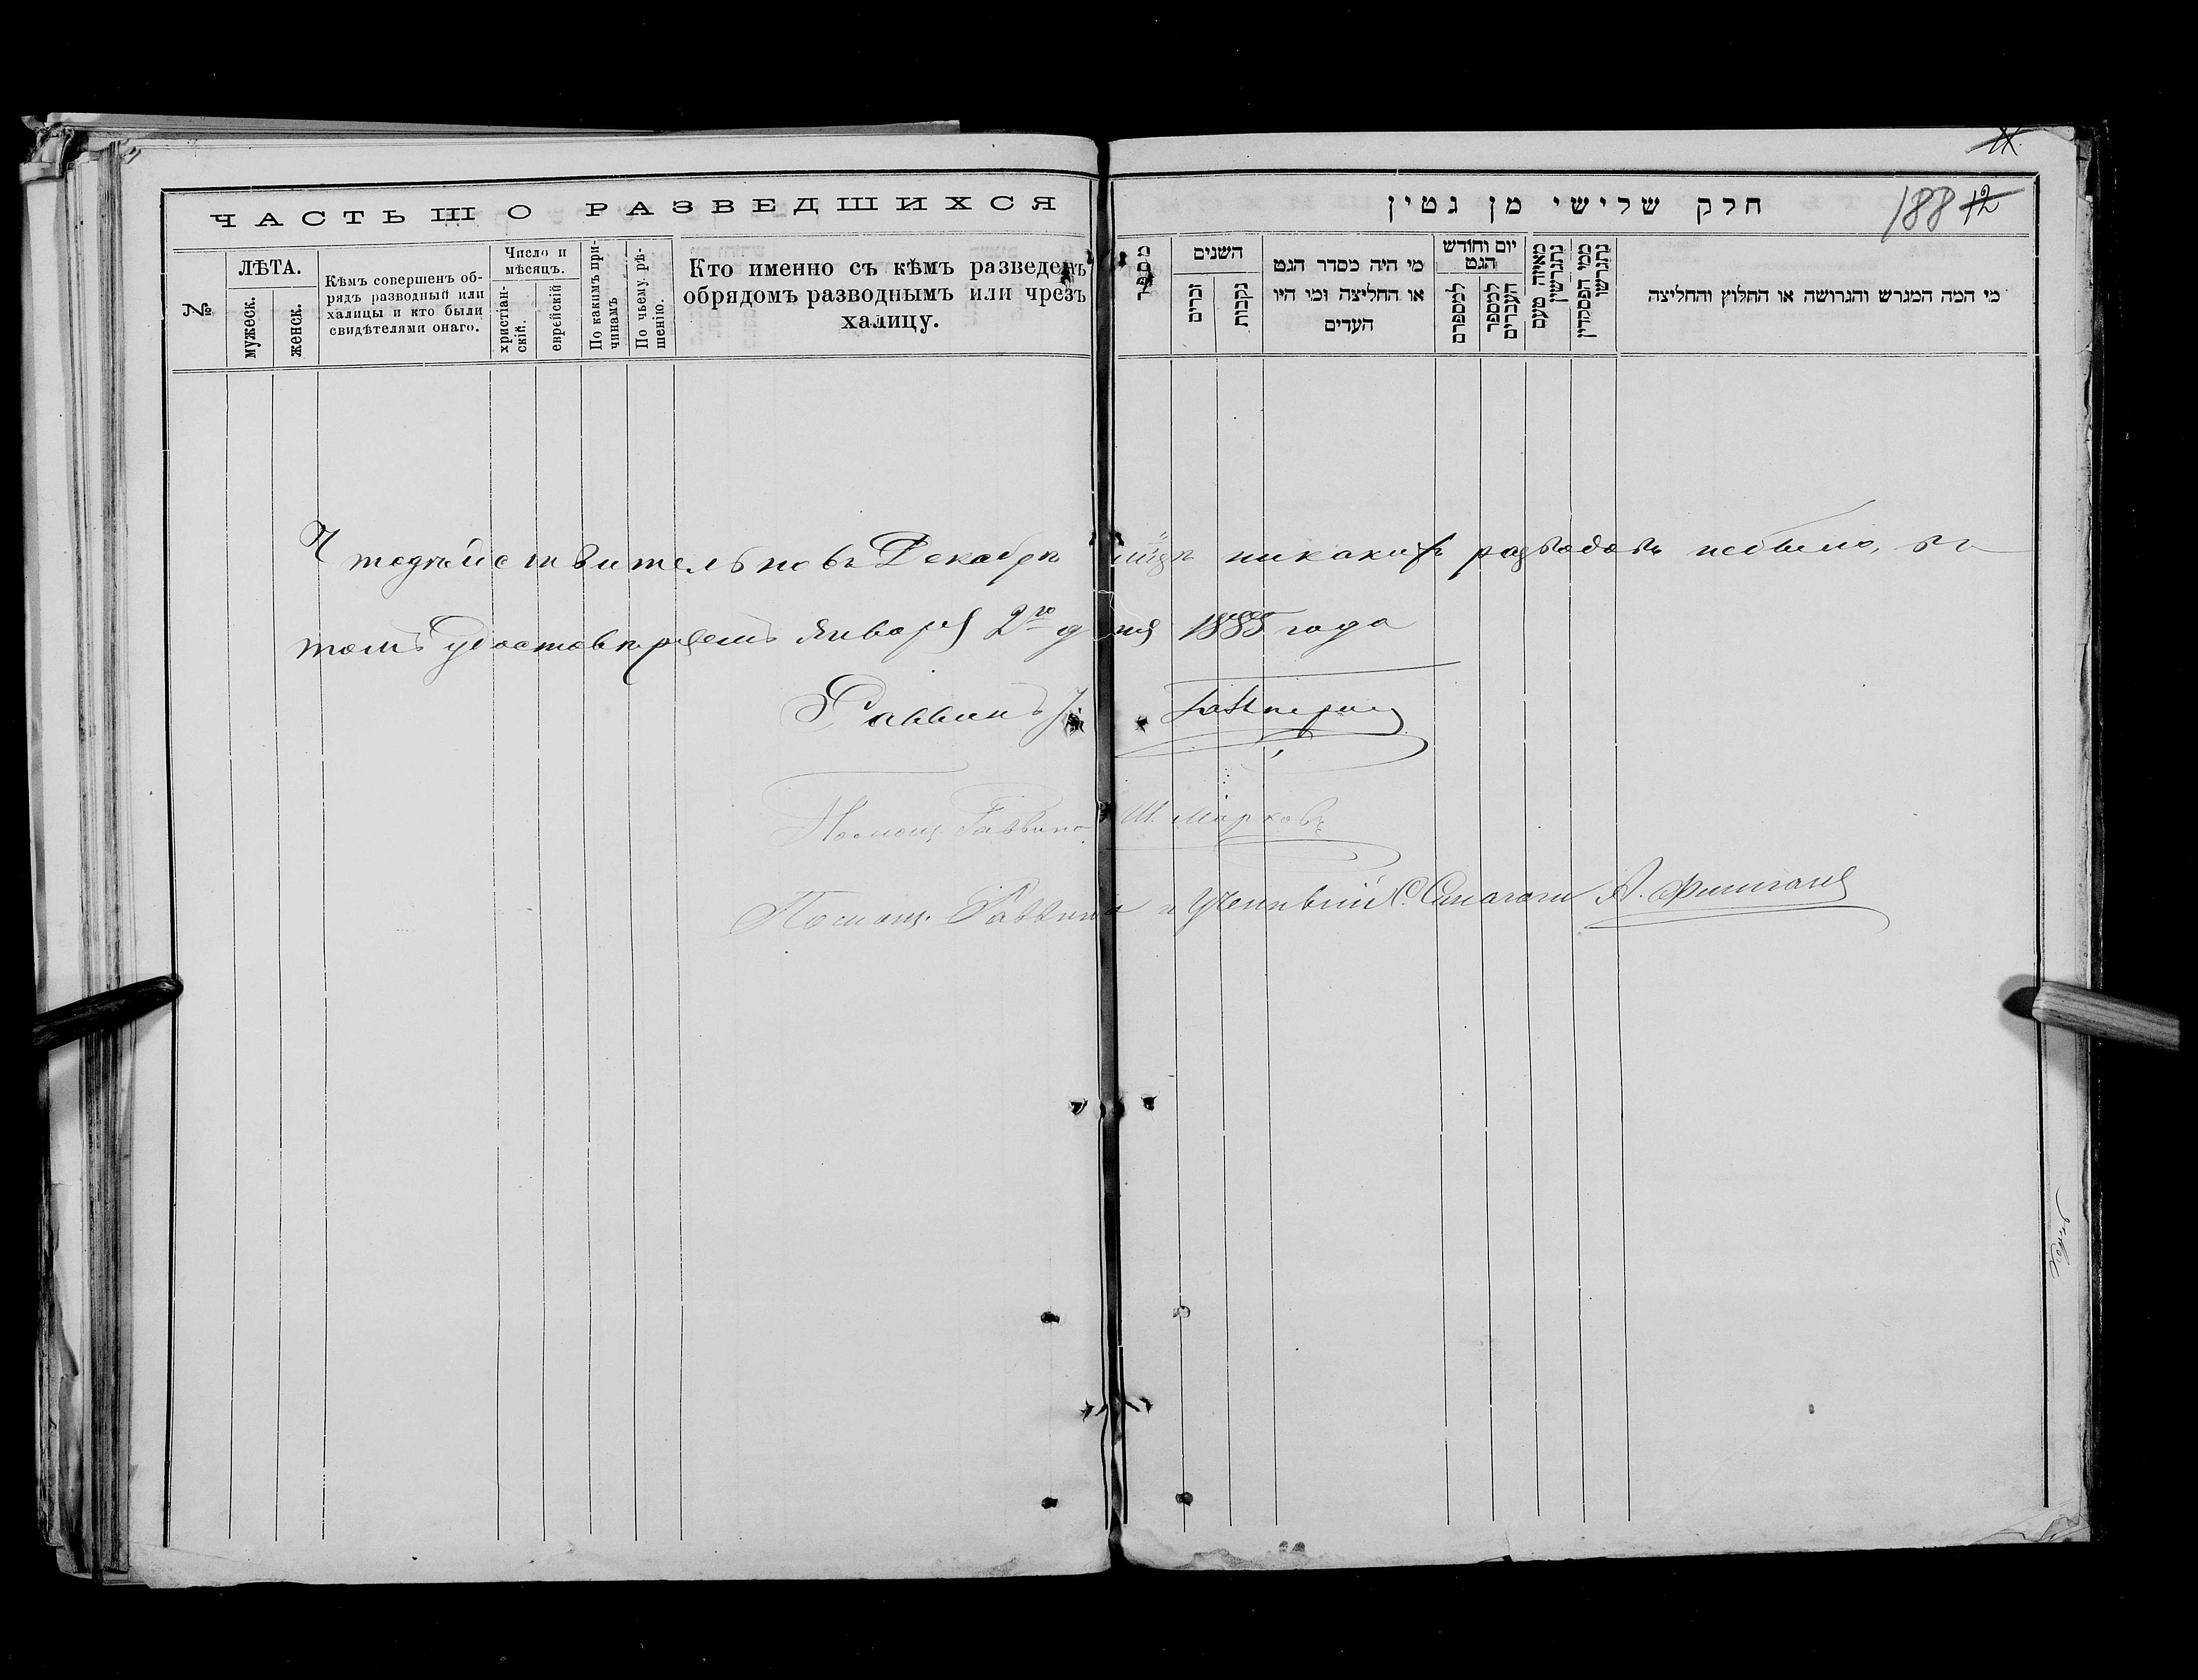 ЧАСТЬ III О РАЗВЕДШИХСЯ
№
ЛѢТА.
мужеск.
женск.
Кѣмъ совершенъ об-
рядъ разводный или
халицы и кто были
свидѣтелями онаго.
Число и
мѣсяцъ.
христіан-
скій.
еврейскій
По какимъ при-
чинамъ
По чьему рѣ-
шенію.
Кто именно съ кѣмъ разведенъ
обрядомъ разводнымъ или чрезъ
халицу.
חלק שלישי מן גטין
188 12
מספר
השנים
זכרים
נקבות
מי היה מסדר הגט
או החליצה ומי היו
העדים
יום וחודש
הגט
למספרם
למספר
העברים
מאיזה טעם
נתגרשו
ממי הפסקדין
נתגרשו
מי המה המגרש והגרושה או החלוץ והחליצה
Что дѣйствительно въ Декабрѣ никакихъ разводовъ небыло, въ
томъ удостовѣряемъ Января 2го дня 1885 года
Раввинъ
Помощ Раввина Ш. Марковъ
Помощ. Раввина и Ученывій С. Синагоги А.